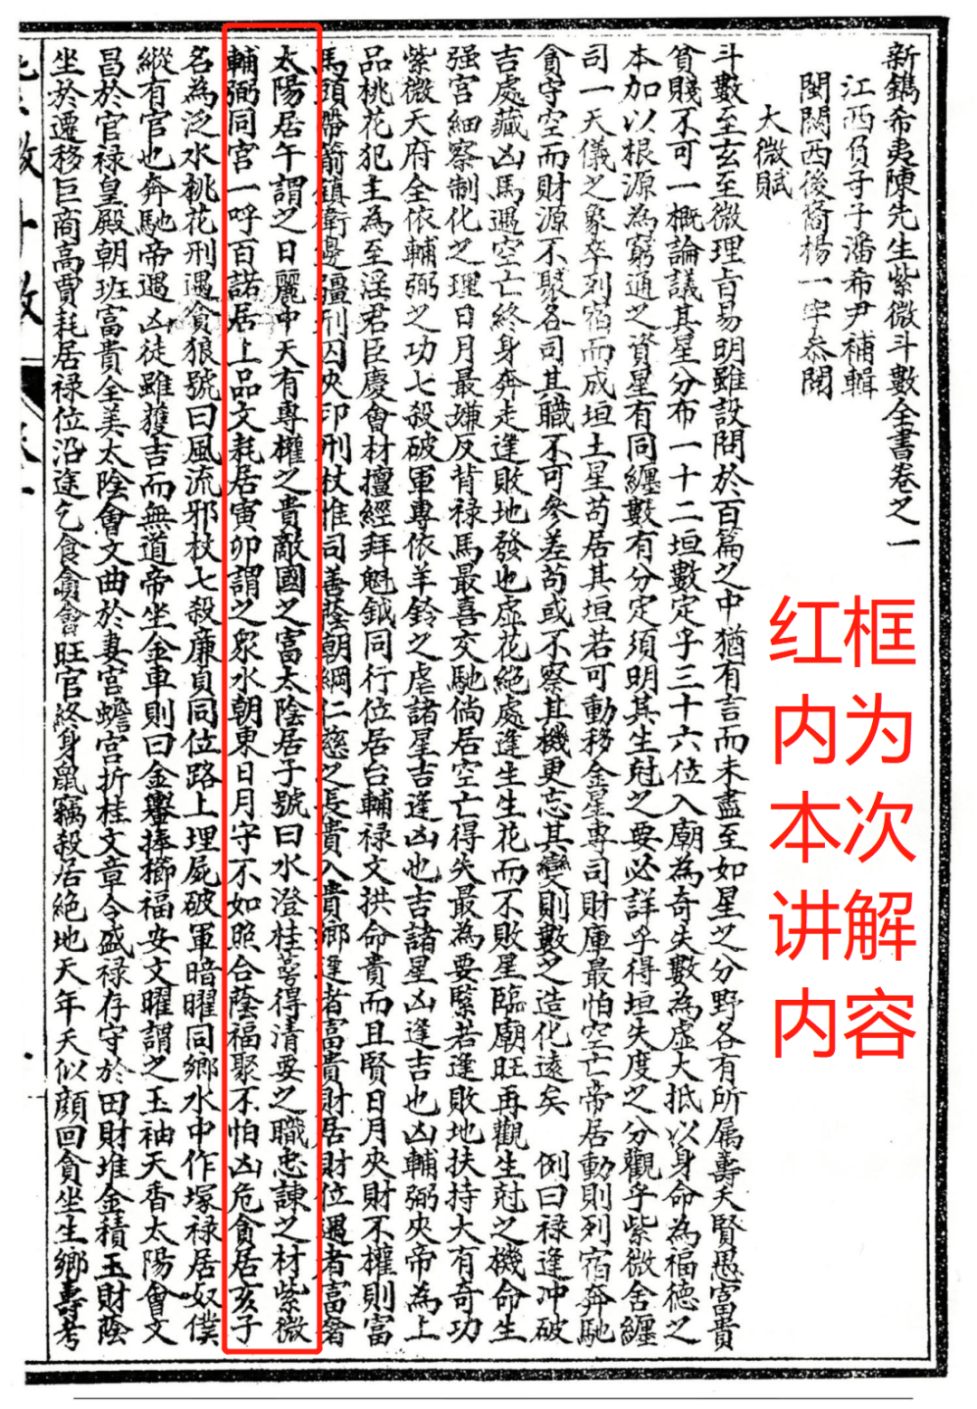 新鐫希夷陳先生紫微斗數全書卷之一
江西負子子潘希尹補輯
閩關西後裔楊一宇叅閱
大微賦
斗數至玄至微理旨易明雖設問於百篇之中猶有言而未盡至如星之分野各有所属壽夭賢愚富貴
貧賤不可一概論議其星分布一十二垣數定乎三十六位入廟為奇失數為虛大抵以身命為福德之
本加以根源為窮通之資星有同纏數有分定須明其生尅之要必詳乎得垣失度之分觀乎紫微舍纏
司一天儀之象卒列宿而成垣土星苟居其垣若可動移金星專司財庫最怕空亡帝居動則列宿奔馳
貪守空而財源不聚各司其職不可參差苟或不察其機更忘其變則數之造化遠矣 例曰祿逢冲破
吉處藏凶馬遇空亡終身奔走逢敗地發也虛花絕處逢生生花而不敗星臨廟旺再觀生尅之機命生
强宮細察制化之理日月最嫌反背祿馬最喜交馳倘居空亡得失最為要緊若逢敗地扶持大有奇功
紫微天府全依輔弼之功七殺破軍專依羊鈴之虐諸星吉逢凶也吉諸星凶逢吉也凶輔弼夾帝為上
品桃花犯主為至淫君臣慶會材擅經拜魁鉞同行位居台輔祿文拱命貴而且賢日月夾財不權則富
馬頭帶箭鎮衛邊疆刑囚夾印刑杖惟司善蔭朝綱仁慈之長貴入貴鄉逢者富貴財居財位遇者富奢
太陽居午謂之日麗中天有專權之貴敵國之富太陰居子號曰水澄桂萼得清要之職忠諫之材紫微
輔弼同宮一呼百諾居上品文耗居寅卯謂之衆水朝東日月守不如照合蔭福聚不怕凶危貪居亥子
名為泛水桃花刑遇貪狼號曰風流邪杖七殺廉貞同位路上埋屍破軍暗曜同鄉水中作塚祿居奴僕
縱有官也奔馳帝遇凶徒雖獲吉而無道帝坐金車則曰金轝捧櫛福安文曜謂之玉袖天香太陽會文
昌於官禄皇殿朝班富貴全美太陰會文曲於妻宮蟾宮折桂文章令盛禄存守於田財堆金積玉財蔭
坐於遷移巨商高賈耗居祿位沿途乞食貪會旺宮終身鼠竊殺居絕地天年夭似顔回貪坐生鄉壽考
红框
内为
本次
讲解
内容